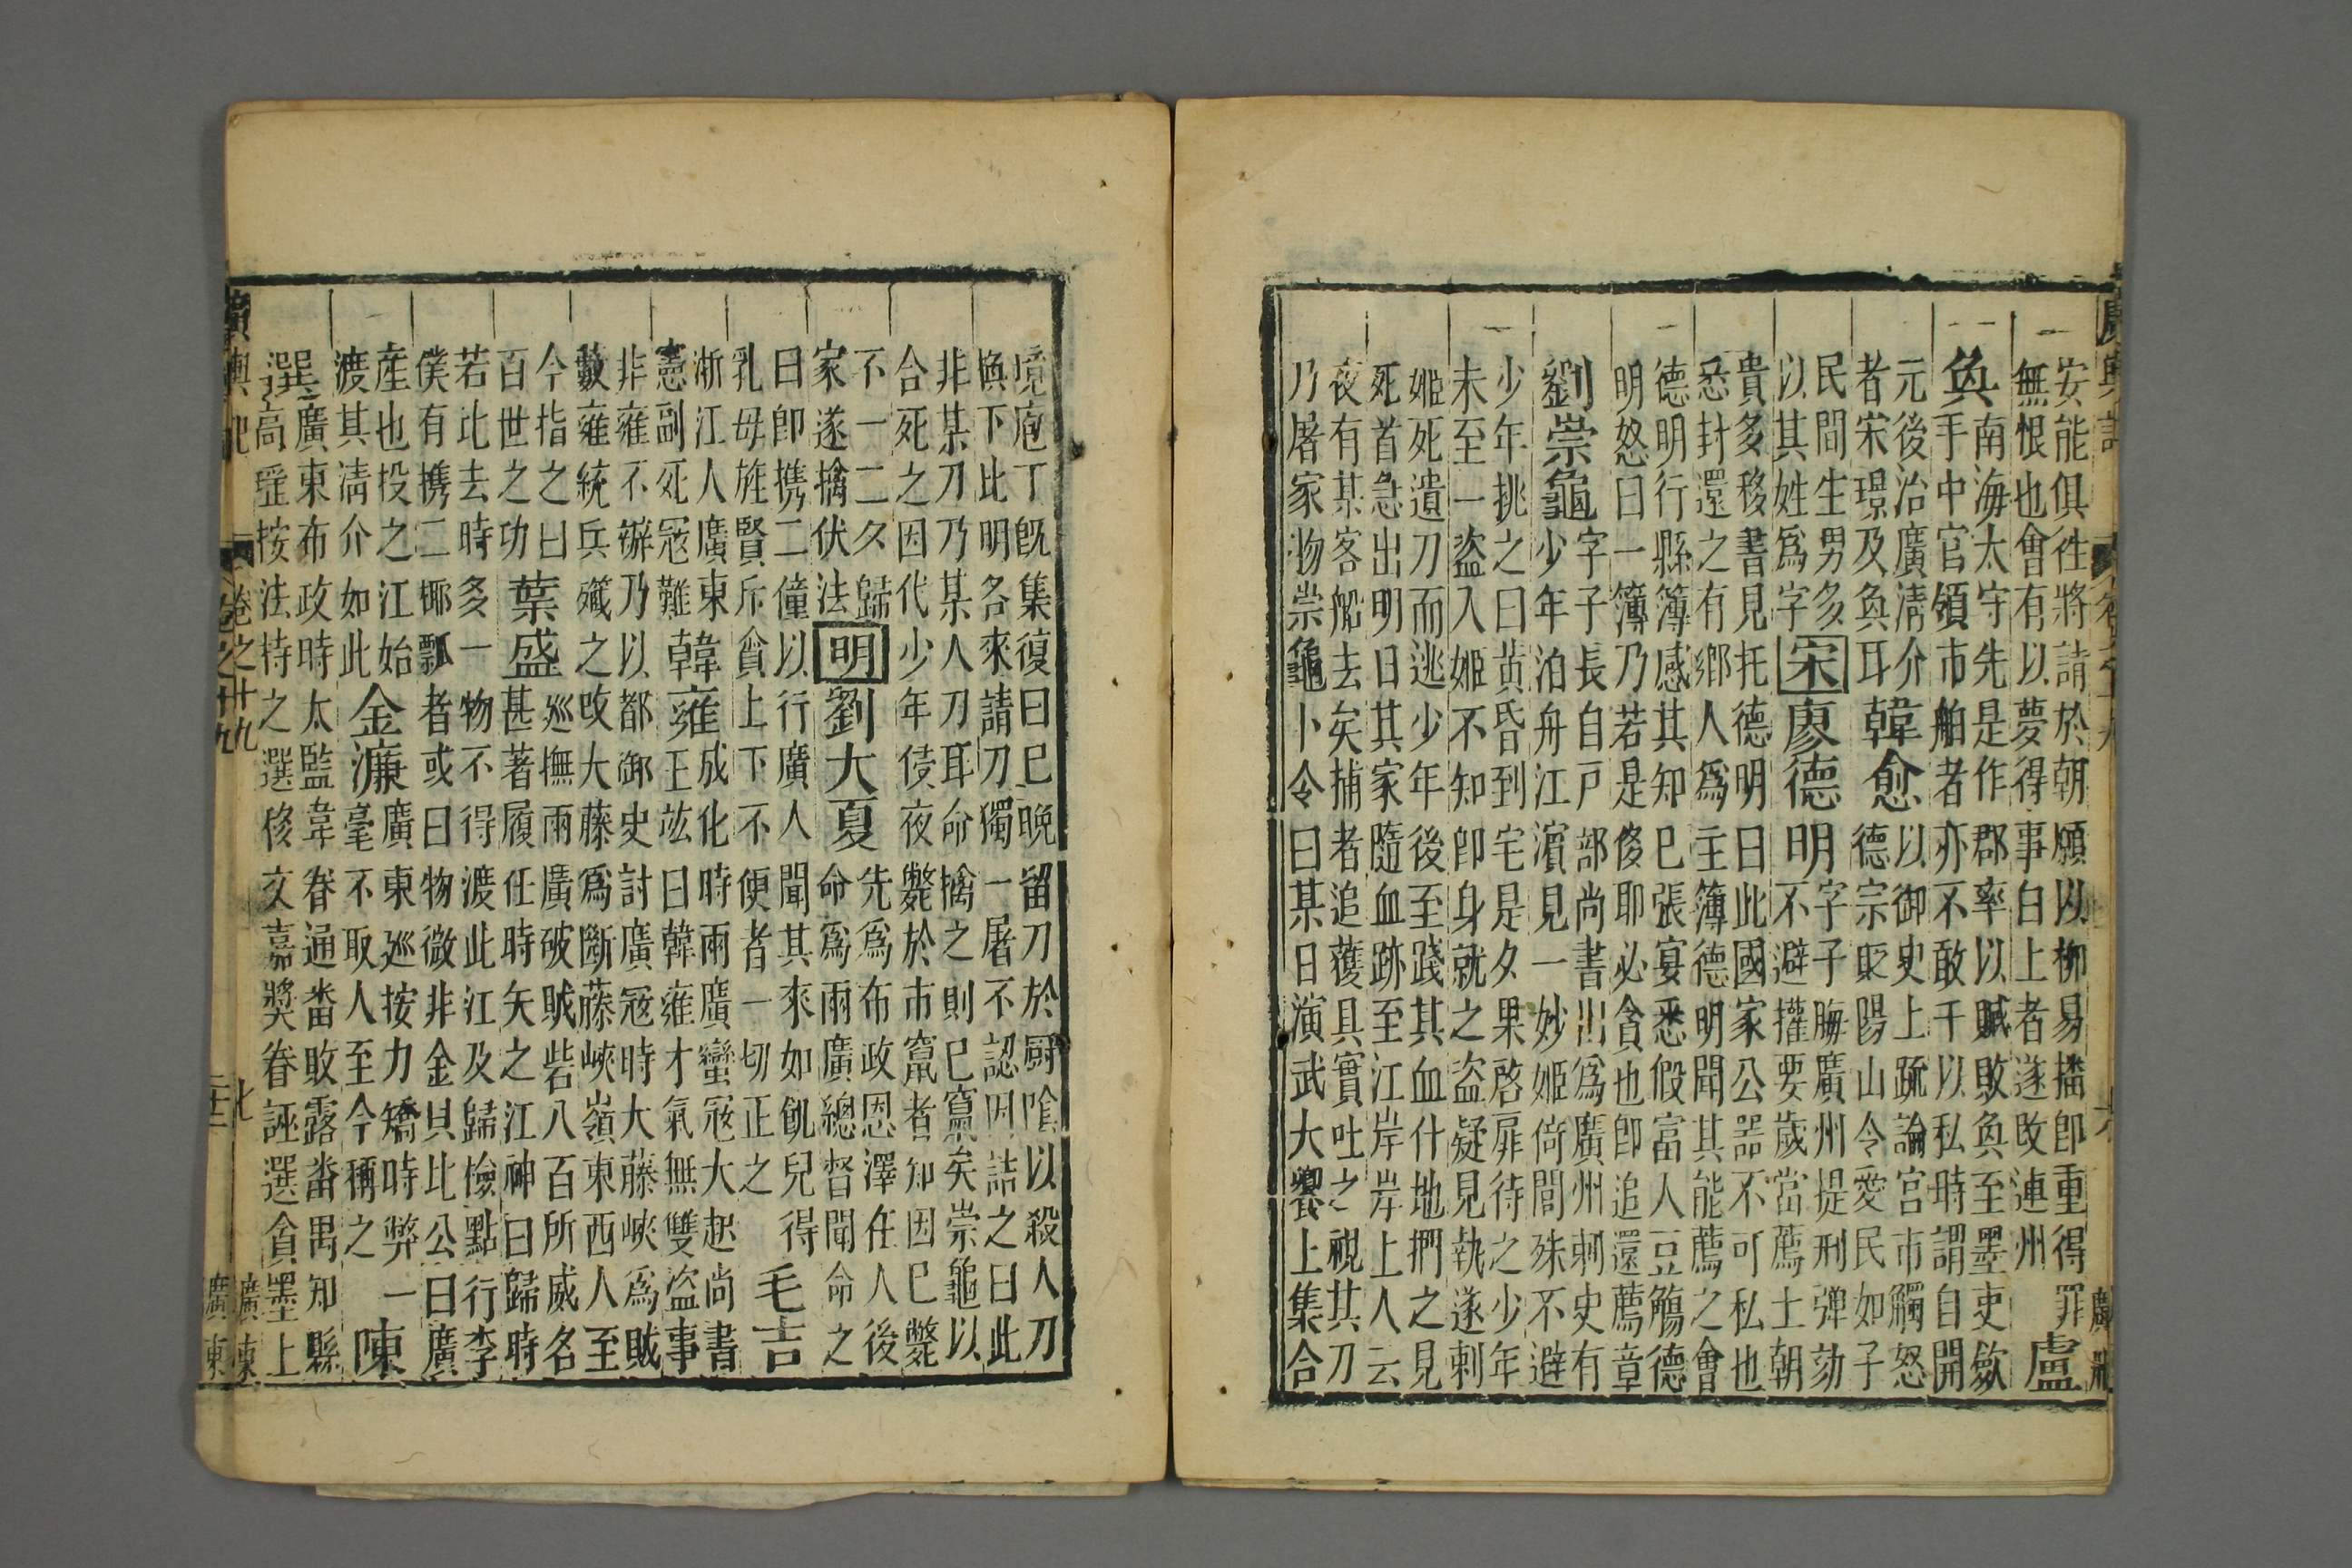 安能俱徃將請於朝願以柳易播即重得罪盧
無恨也會有以夢得事白上者遂改連州
奐南海太守先是作郡率以贓敗奐至墨吏斂
手中官領市舶者亦不敢干以私時謂自開
元後治廣清介以御史上疏論宮市觸怒
者宋璟及奐耳韓愈德宗貶陽山令愛民如子
民間生男多宋廖德明字子晦廣州提刑彈劾
以其姓爲字不避權要歲當薦士朝
貴多移書見托德明曰此國家公器不可私也
悉封還之有鄉人爲主簿德明聞其能薦之會
德明行縣簿感其知巳張宴悉假富人豆觴德
明怒曰一簿乃若是侈耶必貪也即追還薦章
劉崇龜字子長自戸部尚書出爲廣州刺史有
少年泊舟江濵見一妙姬倚閭殊不避
少年挑之曰黄昏到宅是夕果啓扉待之少年
未至一盜入姬不知即身就之盜疑見執遂刺
姬死遺刀而逃少年後至踐其血什地捫之見
死首急出明日其家隨血跡至江岸岸上人云
夜有某客船去矣捕者追獲具實吐之視其刀
乃屠家物崇龜卜令曰某日演武大饗上集合
境庖丁旣集復曰巳晚留刀於厨隂以殺人刀
換下此明各來請刀獨一屠不認因詰之曰此
非某刀乃某人刀耳命擒之則已竄矣崇龜以
合死之因代少年侯夜斃於市竄者知因巳斃
不一二夕歸明劉大夏先爲布政恩澤任人後
家遂擒伏法命爲兩廣總督聞命之
日即携二僮以行廣人聞其來如飢兒得
乳母旌賢斥貪上下不便者一切正之毛吉
浙江人廣東韓雍成化時兩廣蠻冦大起尚書
憲副死冦難王竑曰韓雍才氣無雙盜事
非雍不辦乃以都御史討廣冦時大藤峽爲賊
藪雍統兵殲之改大藤爲斷藤峽嶺東西人至
今指之曰葉盛廵撫兩廣破賊砦八百所威名
百世之功甚著履任時矢之江神曰歸時
若此去時多一物不得渡此江及歸儉點行李
僕有携二椰瓢者或曰物微非金貝比公曰廣
產也投之江始金濂廣東廵按力矯時弊一
渡其清介如此毫不取人至今稱之陳
選廣東布政時太監韋眷通畨敗露畨禺知縣
高瑬按法持之選移文嘉奬眷誣選貪墨上
廣輿記
卷之十九
廣東